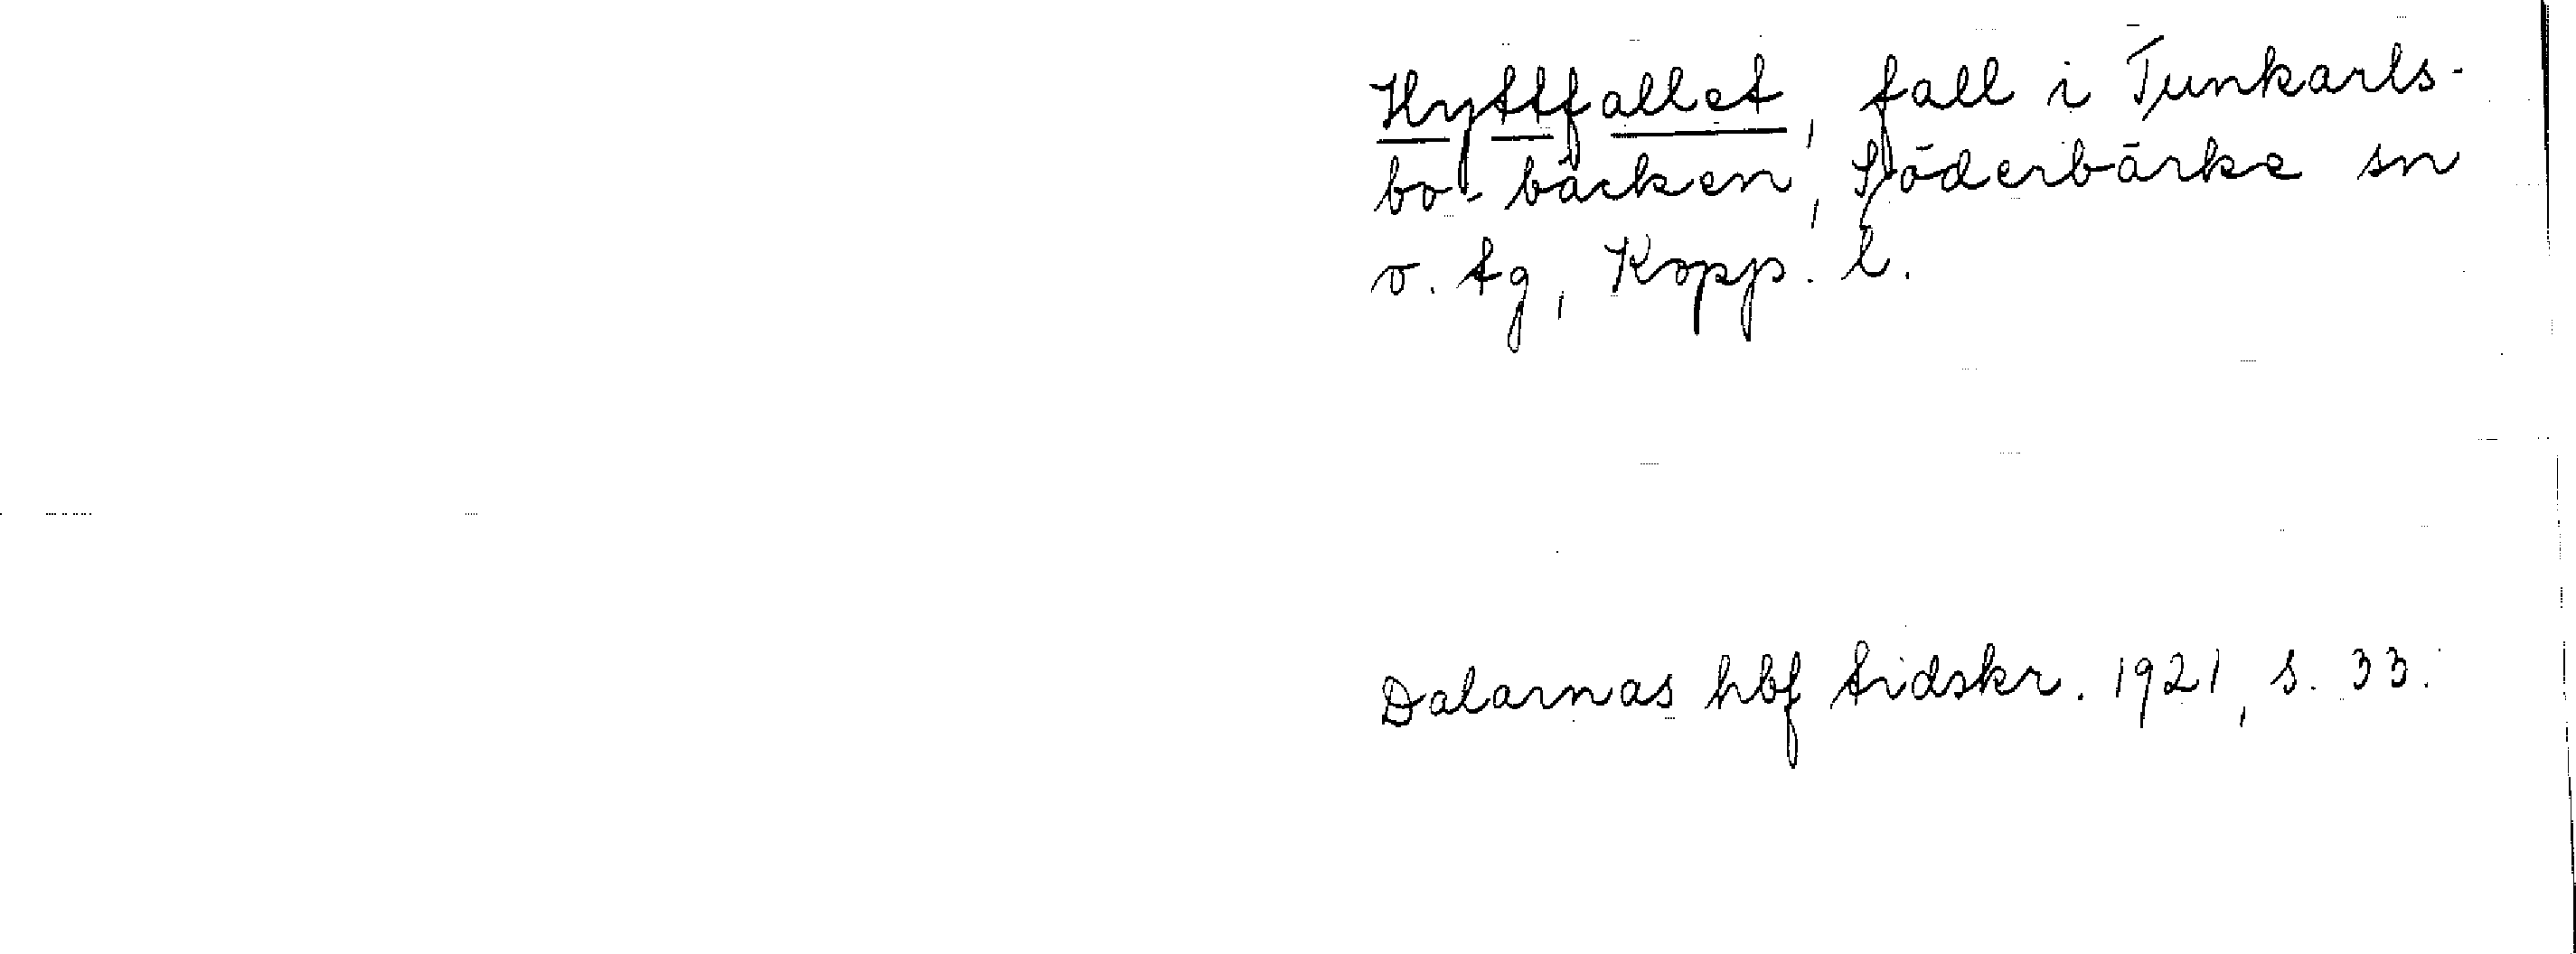 Hyttfallet, fall i Tunkarls-
bo-bäcken, Söderbärke sn
o. tg, Kopp. l.
Dalarnas hbf tidskr. 1921, s. 33.